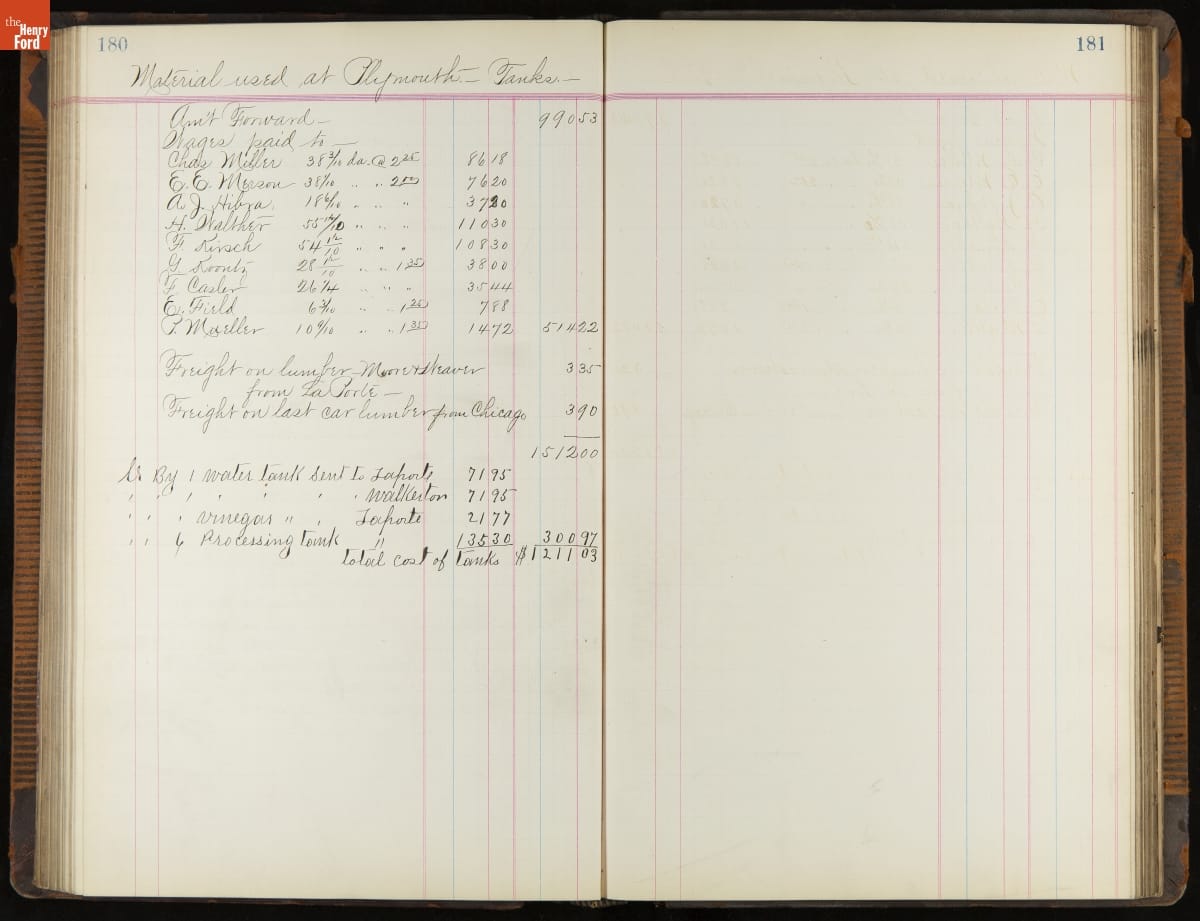 the
Henry
Ford
180
181
Material used at Plymouth - Tanks -
Am't Forward - 990 53
Wages paid to -
Chas Miller 38 3/10 da. @ 2 25 86 18
E. E. Merson 38 1/10 " " 2 00 76 20
A. J. Hibra 18 6/10 " " " 37 20
H. Walther 55 " " " 110 30
F. Kirsch 54 " " " 108 30
G. Koontz 28 " " 1 35 38 00
F. Casler 26 1/4 " " " 35 44
E. Field 6 3/10 " " 1 25 7 88
P. Moeller 10 9/10 " " 1 35 14 72 514 22
Freight on lumber - Moore & Weaver 3 35
from La Porte -
Freight on last car lumber from Chicago 3 90
1512 00
Cr By 1 water tank sent to Laporte 71 95
" " " " " " " Walkerton 71 95
" " " vinegar " " Laporte 21 77
" " 6 Processing tank " 135 30 300 97
total cost of tanks $1211 03